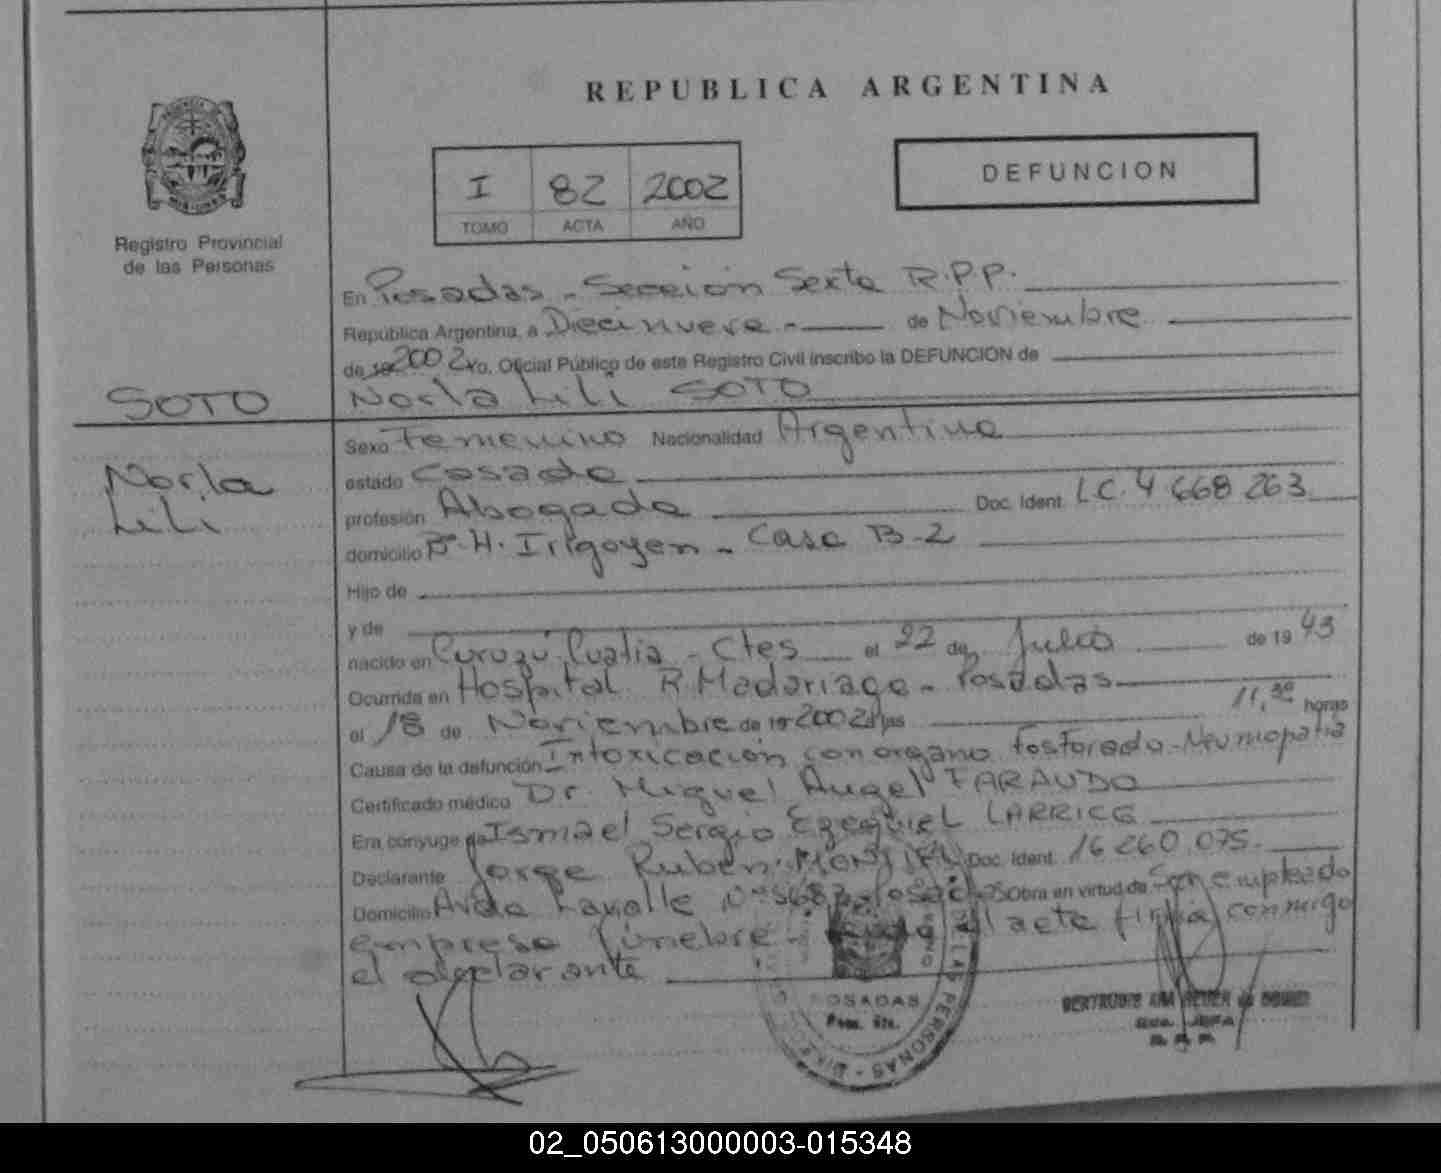 REPUBLICA ARGENTINA
I 82 2002
TOMO ACTA AÑO
DEFUNCION
Registro Provincial
de las Personas
SOTO
Norla
Lili
En Posadas - Sección Sexta R.P.P.
República Argentina, a Diecinueve - de Noviembre
de 19 2002 Yo, Oficial Público de este Registro Civil inscribo la DEFUNCION de
Norla Lili SOTO
Sexo Femenino Nacionalidad Argentina
estado Casada
profesión Abogada Doc. Ident. L.C. 4 668 263
domicilio Bº H. Irigoyen - Casa B-2
Hijo de
y de
nacido en Curuzú Cuatia - Ctes el 22 de Julio de 19 43
Ocurrida en Hospital R. Madariaga - Posadas
el 18 de Noviembre de 19 2002 a las 11,30 horas
Causa de la defunción Intoxicación con organo fosforado - Neumopatia
Certificado médico Dr. Miguel Angel FARAUDO
Era cónyuge de Ismael Sergio Ezequiel LARRICE
Declarante Jorge Ruben Doc. Ident. 16 260 075
Domicilio Avda Lavalle Nº 5683 Posadas Obra en virtud de Ser empleado
empresa fúnebre - el acta firma conmigo
el declarante
POSADAS
LAS PERSONAS
02_050613000003-015348